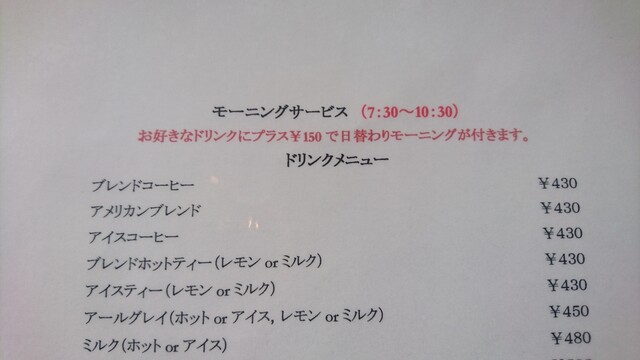 モーニングサービス (7:30～10:30)
お好きなドリンクにプラス￥150で日替わりモーニングが付きます。
ドリンクメニュー
ブレンドコーヒー ￥430
アメリカンブレンド ￥430
アイスコーヒー ￥430
ブレンドホットティー(レモン or ミルク) ￥430
アイスティー(レモン or ミルク) ￥430
アールグレイ(ホット or アイス, レモン or ミルク) ￥450
ミルク(ホット or アイス) ￥480